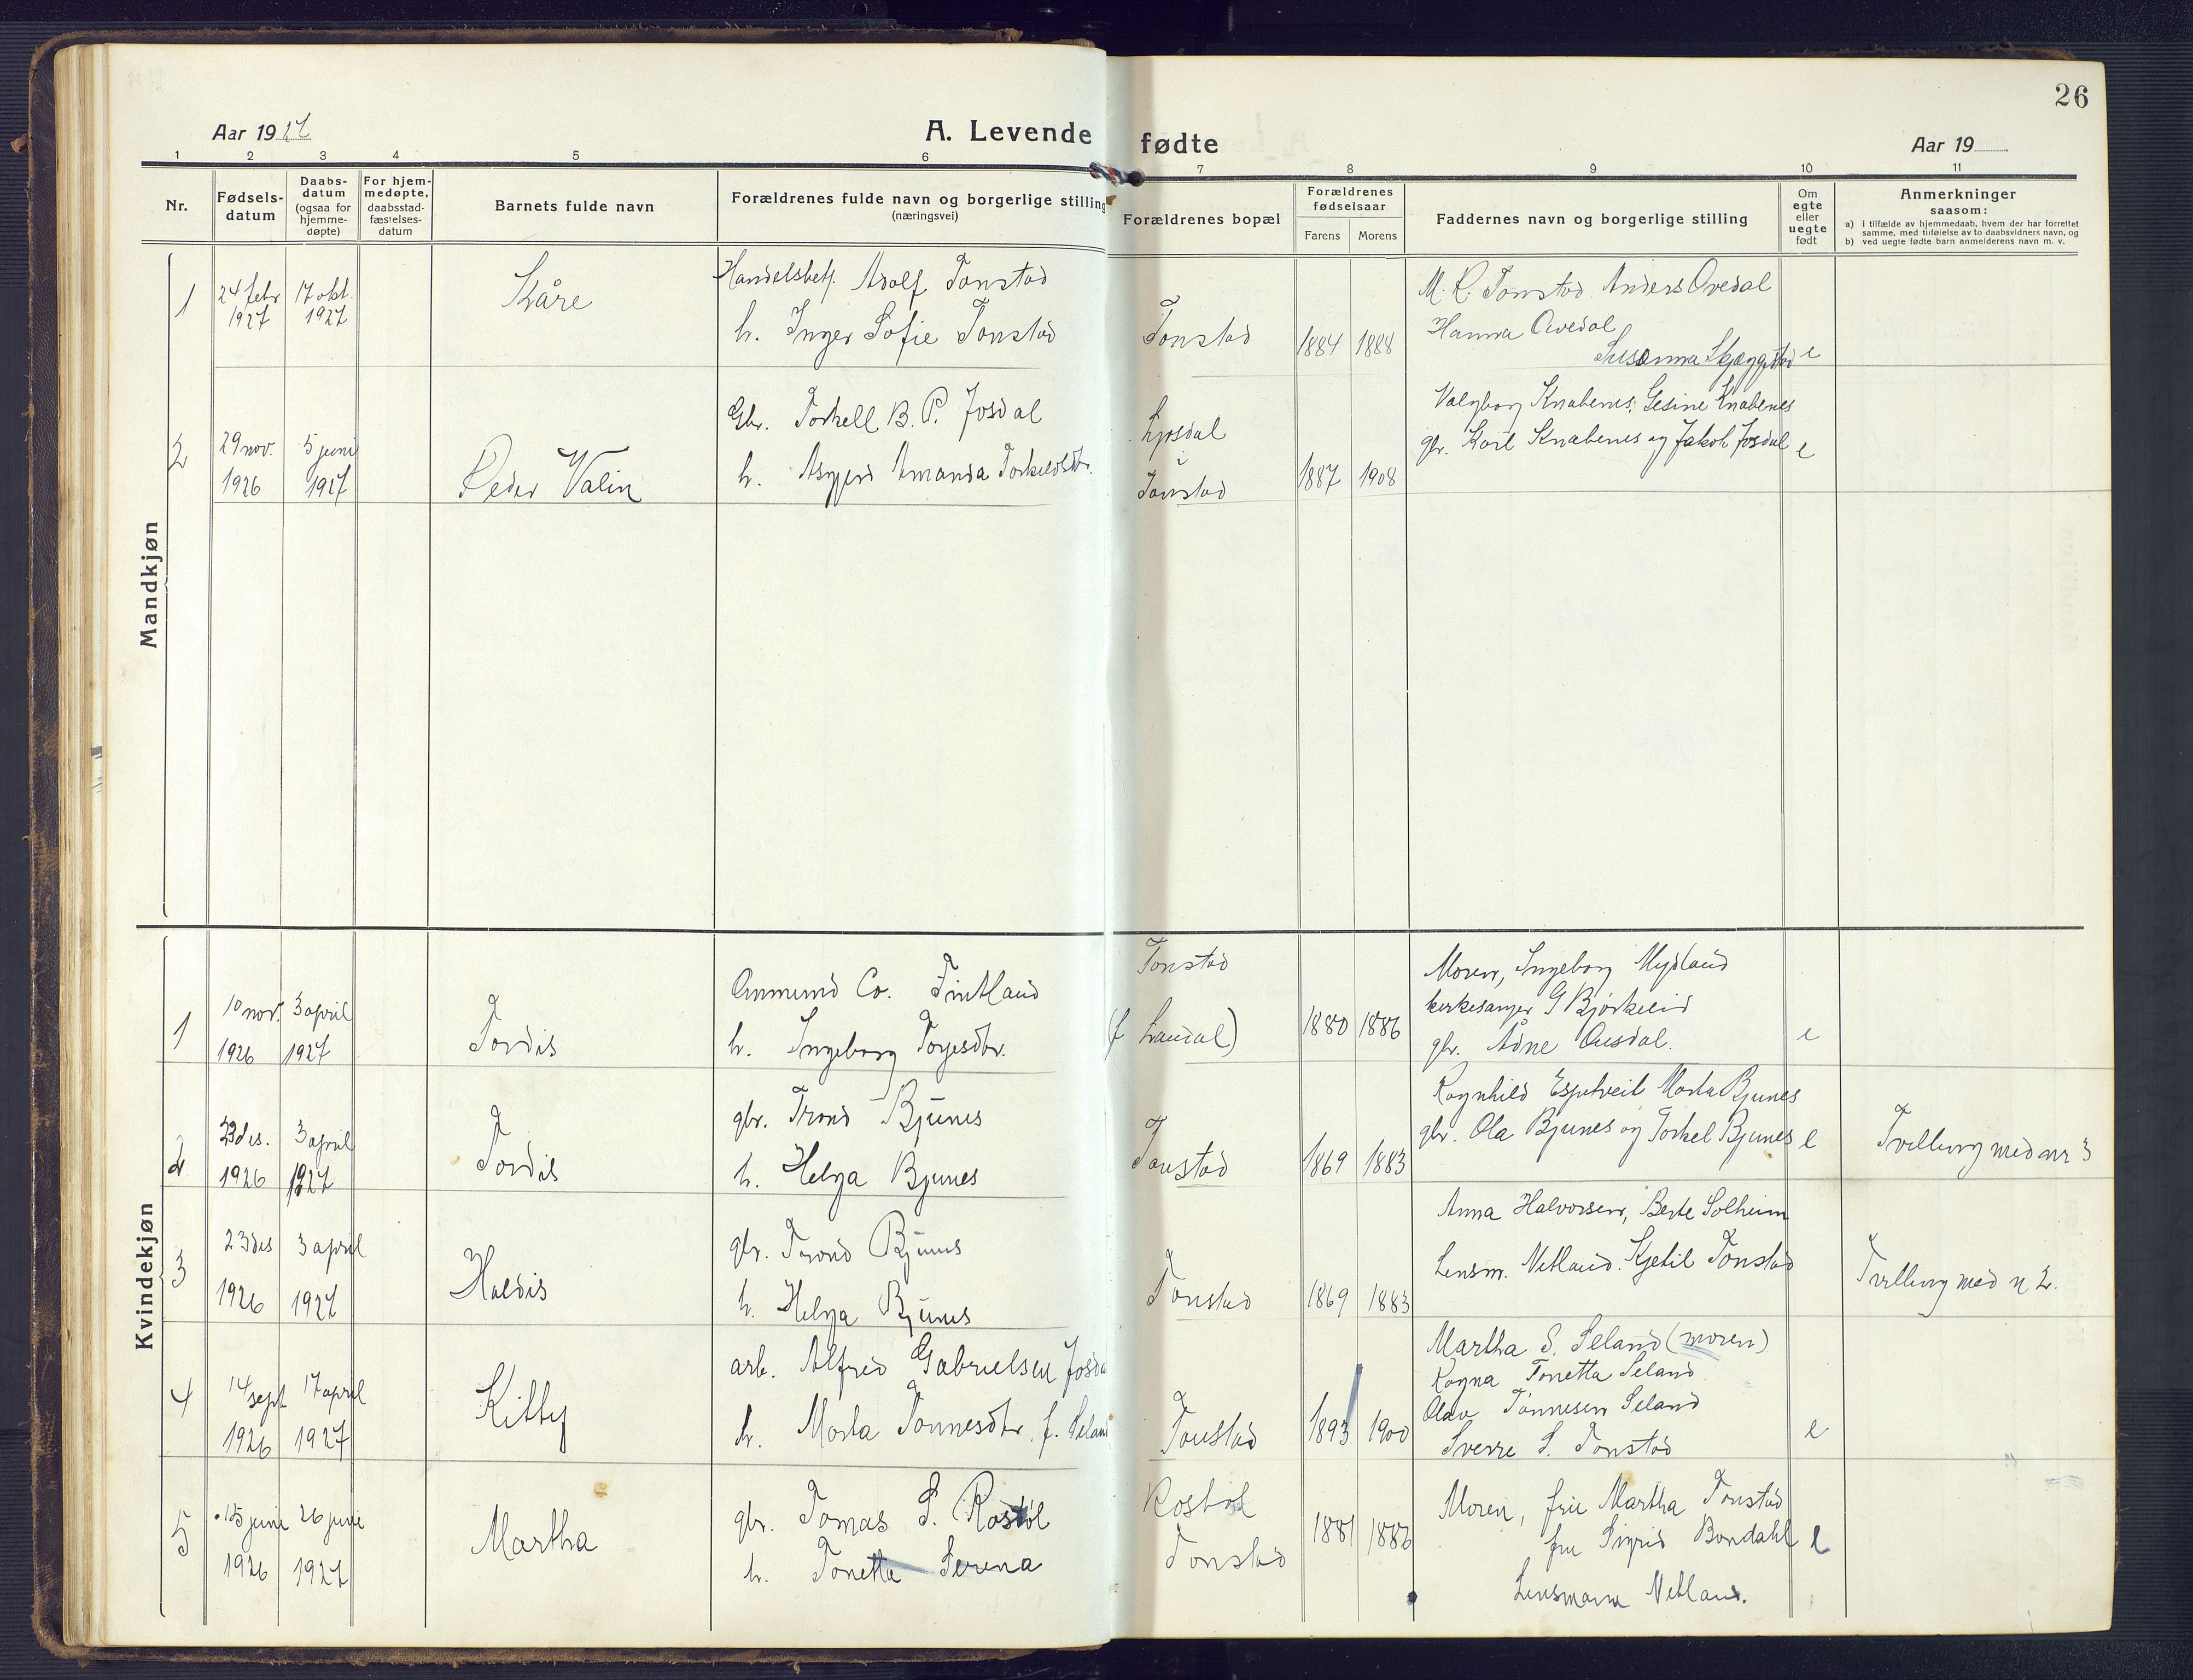 26
Aar 1927
A. Levende fødte
Aar 19
1 2 3 4 5 6 7 8 9 10 11
Nr.
Fødsels-
datum
Daabs-
datum
(ogsaa for
hjemme-
døpte)
For hjem-
medøpte,
daabsstad-
fæstelses-
datum
Barnets fulde navn
Forældrenes fulde navn og borgerlige stilling
(næringsvei)
Forældrenes bopæl
Forældrenes
fødselsaar
Farens Morens
Faddernes navn og borgerlige stilling
Om
egte
eller
uegte
født
Anmerkninger
saasom:
a) i tilfælde av hjemmedaab, hvem der har forrettet
samme, med tilføielse av to daabsvidners navn, og
b) ved uegte fødte barn anmelderens navn m. v.
Mandkjøn
1
24 febr
1927
17 okt.
1927
Kåre
Handelsbetj. Adolf Tonstad
h. Inger Sofie Tonstad
Tonstad
1884 1888
M. R. Tonstad Anders Ovedal
Hanna Ovedal
Susanna Skjeggestad
e
2
29 nov.
1926
5 juni
1927
Peder Valin
Gbr. Torkell B. P. Josdal
h. Asgjerd Amanda Torkeldsdtr.
Josdal
i
Tonstad
1887 1908
Valgborg Knabenes, Gesine Knabenes
gbr. Karl Knabenes og Jakob Josdal
e
Kvindekjøn
1
10 nov.
1926
3 april
1927
Tordis
Ommund Co. Fintland
h. Ingeborg Torjesdtr.
Tonstad
(f Laudal)
1880 1886
Moren, Ingeborg Mydland
kirkesanger G Bjørkeeid
gbr. Ådne Ousdal.
e
2
23 des.
1926
3 april
1927
Tordis
gbr. Trond Bjunes
h. Helga Bjunes
Tonstad
1869 1883
Ragnhild Espetveit Marta Bjunes
gbr. Ola Bjunes og Torkel Bjunes
e
Tvilling med nr 3
3
23 des
1926
3 april
1927
Haldis
gbr. Trond Bjunes
h. Helga Bjunes
Tonstad
1869 1883
Anna Halvorsen, Berte Solheim
Lensm. Netland. Kjetil Tonstad
Tvilling med n 2.
4
14 sept
1926
17 april
1927
Kitty
arb. Alfred Gabrielsen Josdal
h. Marta Tonnesdtr. f. Seland
Tonstad
1893 1900
Martha S. Seland (moren)
Ragna Tonetta Seland
Olav Tønnesen Seland
Sverre S. Tonstad
e
5
15 juni
1926
26 juni
1927
Martha
gbr. Tomas S. Rostøl
h. Tonetta Serena
Rostøl
Tonstad
1881 1886
Moren, fru Martha Tonstad
fru Sigrid Bondahl
Lensmann Netland.
e